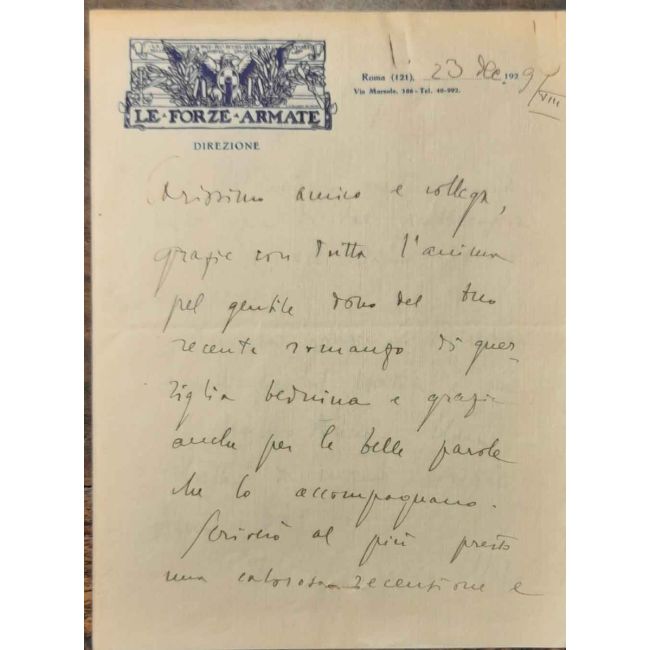 LE·FORZE·ARMATE
DIREZIONE
Roma (121), 23 Dic. 1929/VIII
Via Marsala, 106 - Tel. 40-992.
Carissimo amico e collega,
grazie con tutta l'anima
pel gentile dono del tuo
recente romanzo di guer-
riglia beduina e grazie
anche per le belle parole
che lo accompagnano.
Scriverò al più presto
una calorosa recensione e